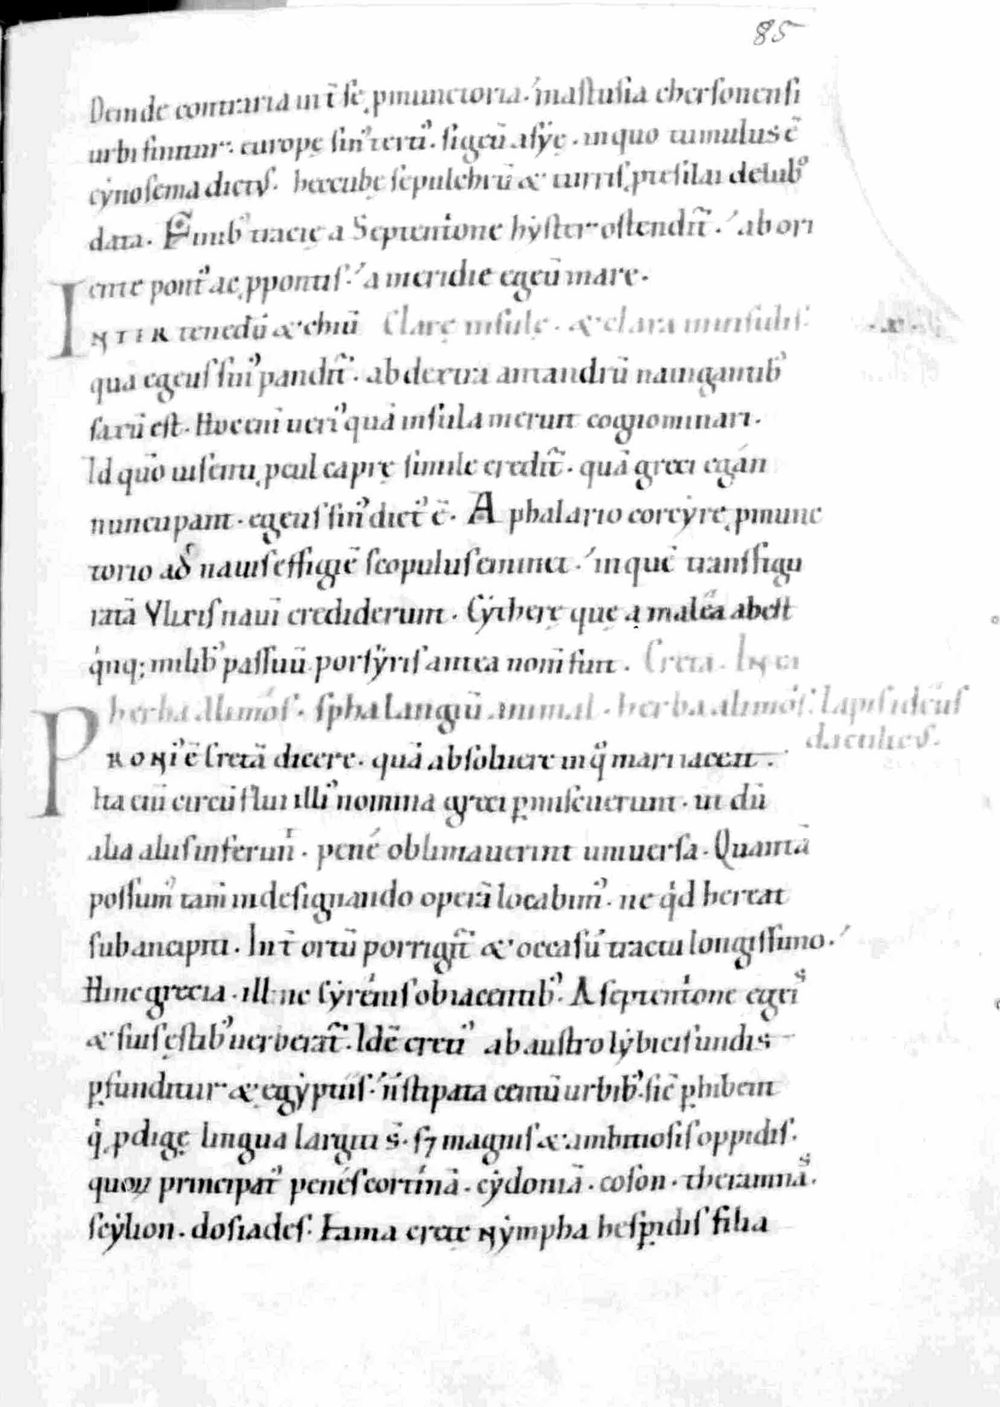 85
Deinde contraria int̄ se ꝓmunctoria. mastusia chersonensi
urbi finitur. europę sin᾽ tertı᾽. sigeū asyę. in quo tumulus ē
cẏnosema dictus. heccubę sepulchrū & turris ꝓtesilai delub᾽
data. Finib᾽ tracię a Septentione hẏster ostendit̄. ab ori
ente pont᾽ ac ꝓpontis. a meridie egeū mare.
INTER tenedū & chiū Clarę insulę. & clara in insulis. .xi.
quā egeus sin᾽ pandit̄. ab dextra antandrū nauigantib᾽
saxū est. Hoc eni ueri᾽ quā insula merunt cognominari.
Id quō uisentı ꝓcul caprę simile credit̄. quā greci egan
nuncupant. egeus sin᾽ dict᾽ ē. A phalario corcẏrę ꝓmunc
torio ad nauis effigiē scopulus eminet. in quē transfigu
ratā Ulixis nauī crediderunt. Cẏtherę quę a malea abest
qnq; milib᾽ passuū porfẏris antea nom̄ fuit. Creta. In ea
herba alimos. sphalangiū animal. herba alimos. lapis ideus
dactilicus.
PRONI᾽ ē Cretā dicere. quā absoluere in q᾽ mari iacent.
Ita eni circū flui illi᾽ nomina greci ꝑmiscuerunt. ut dū
alia aliis inferunt. pene oblimauerint uniuersa. Quantā
possum᾽ tam̄ in designando operā locabim᾽. ne qd hereat
sub ancipiti. Int̄ ortū porrigit̄ & occasū tractu longissimo.
Hinc grecia. illinc sẏrenis obiacentib᾽. A septentione egeis
& suis ęstib᾽ uerberat̄. Idē creti᾽ ab austro lẏbicis undis
ꝑfunditur & egẏptiis. n̄ stipata centū urbib᾽. sic ꝑhibent
q ꝓdigę lingua largiti s̄. s; magnis & ambitiosis oppidis.
quoꝝ principat᾽ penes cortınā. cẏdoniā. coson. theramnas.
scẏlion. dosiades. Fama cretę nẏmpha hesꝑidis filia